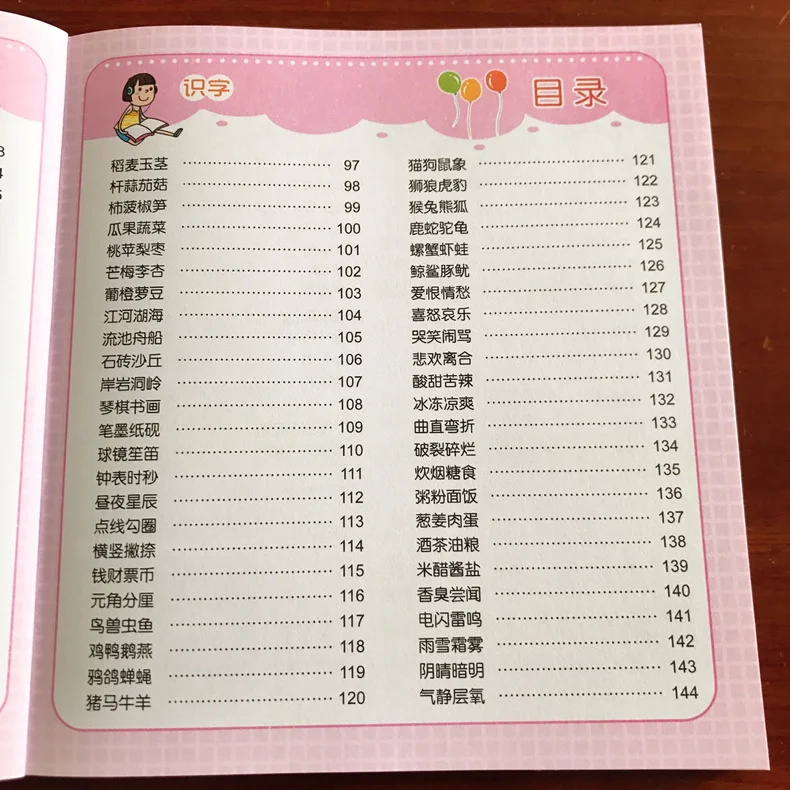 识字
目录
稻麦玉茎 97
杆蒜茄菇 98
柿菠椒笋 99
瓜果蔬菜 100
桃苹梨枣 101
芒梅李杏 102
葡橙萝豆 103
江河湖海 104
流池舟船 105
石砖沙丘 106
岸岩洞岭 107
琴棋书画 108
笔墨纸砚 109
球镜笙笛 110
钟表时秒 111
昼夜星辰 112
点线勾圈 113
横竖撇捺 114
钱财票币 115
元角分厘 116
鸟兽虫鱼 117
鸡鸭鹅燕 118
鸦鸽蝉蝇 119
猪马牛羊 120
猫狗鼠象 121
狮狼虎豹 122
猴兔熊狐 123
鹿蛇驼龟 124
螺蟹虾蛙 125
鲸鲨豚鱿 126
爱恨情愁 127
喜怒哀乐 128
哭笑闹骂 129
悲欢离合 130
酸甜苦辣 131
冰冻凉爽 132
曲直弯折 133
破裂碎烂 134
炊烟糖食 135
粥粉面饭 136
葱姜肉蛋 137
酒茶油粮 138
米醋酱盐 139
香臭尝闻 140
电闪雷鸣 141
雨雪霜雾 142
阴晴暗明 143
气静层氧 144